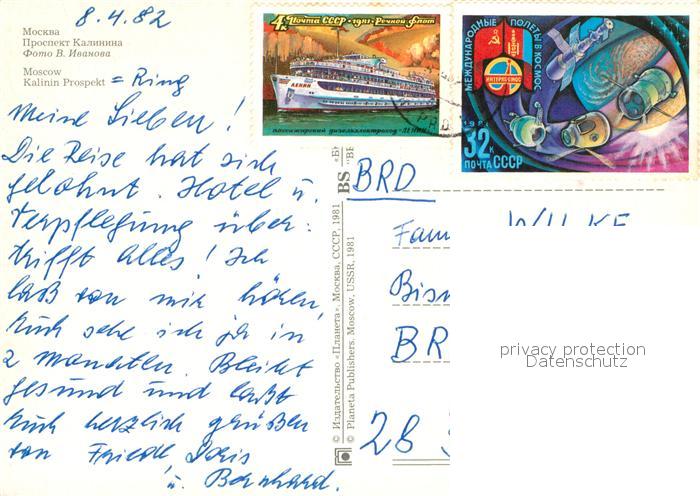 8.4.82
Москва
Проспект Калинина
Фото В. Иванова
Moscow
Kalinin Prospekt = Ring
Meine Lieben!
Die Reise hat sich
gelohnt. Hotel u.
Verpflegung über-
trifft alles! Ich
laß von mir hören,
Euch sehe ich ja in
2 Monaten. Bleibt
gesund und laßt
Euch herzlich grüßen
von Friedl Doris
u. Bernhard.
4к Почта СССР · 1981 · Речной флот
ЛЕНИН
пассажирский дизель-электроход «ЛЕНИН»
МЕЖДУНАРОДНЫЕ ПОЛЕТЫ В КОСМОС
ИНТЕРКОСМОС
32к
ПОЧТА СССР
© Издательство «Планета». Москва, СССР, 1981
© Planeta Publishers. Moscow, USSR, 1981
BRD
Fam
Bis
BR
28
privacy protection
Datenschutz